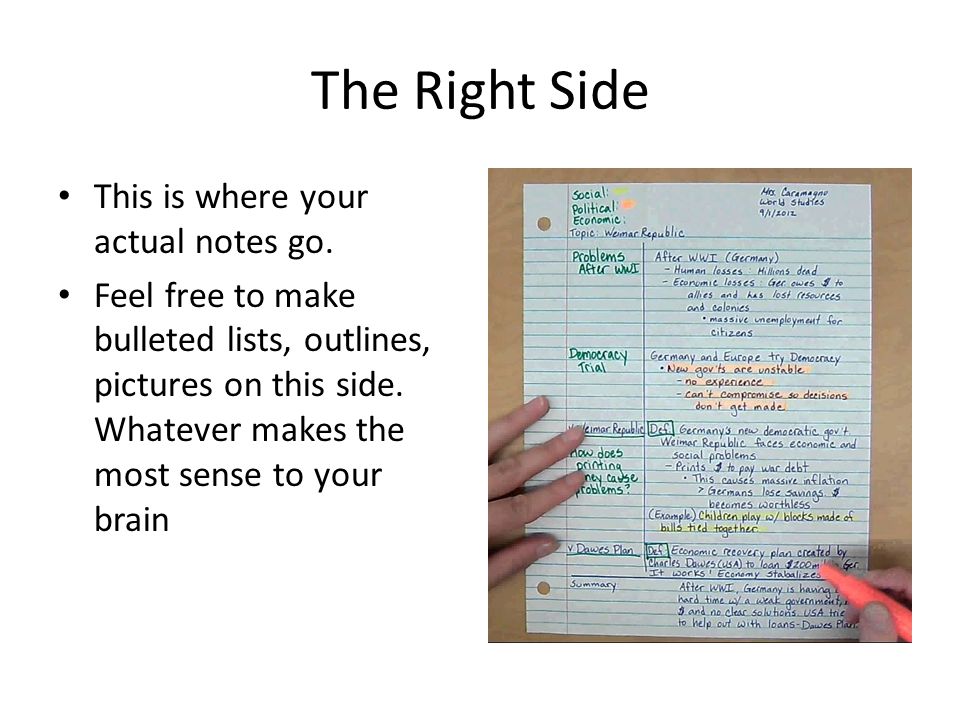 The Right Side
• This is where your
actual notes go.
• Feel free to make
bulleted lists, outlines,
pictures on this side.
Whatever makes the
most sense to your
brain
Social:
Political:
Economic:
Topic: Weimar Republic
Mrs. Caramagno
World Studies
9/1/2012
Problems
After WWI
After WWI (Germany)
- Human losses: Millions dead
- Economic losses: Ger owes $ to
allies and has lost resources
and colonies
• massive unemployment for
citizens
Democracy
Trial
Germany and Europe try Democracy
• New gov'ts are unstable
- no experience
- can't compromise so decisions
don't get made
Weimar Republic
How does
printing
cause
problems?
Def. Germany's new democratic gov't.
Weimar Republic faces economic and
social problems
- Prints $ to pay war debt
• This causes massive inflation
> Germans lose savings. $
becomes worthless
(Example) Children play w/ blocks made of
bills tied together
v Dawes Plan
Def. Economic recovery plan created by
Charles Dawes (USA) to loan $200 Ger.
It works! Economy stabalizes
Summary
After WWI, Germany is having
hard time w/ a weak government,
$ and no clear solutions. USA
to help out with loans-Dawes Plan